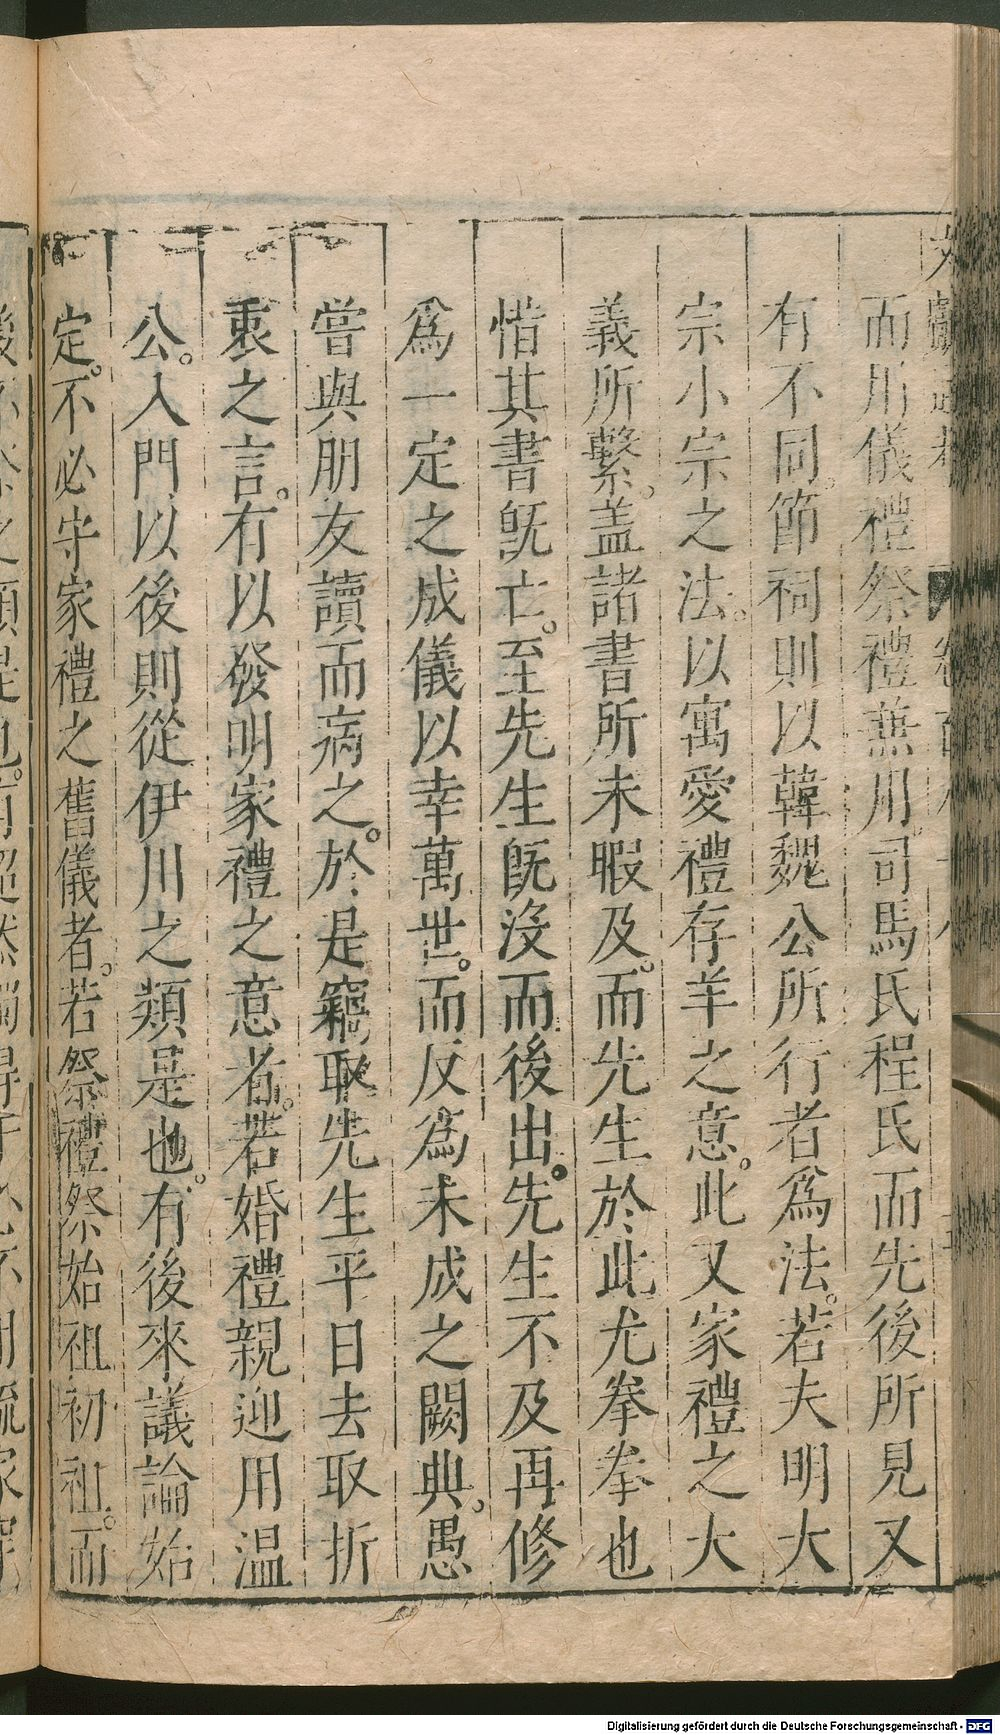 而川儀禮祭禮兼用司馬氏程氏而先後所見又
有不同。節祠則以韓魏公所行者爲法。若夫明大
宗小宗之法。以寓愛禮存羊之意。此又家禮之大
義所繫。盖諸書所未暇及。而先生於此尤拳拳也
惜其書旣亡。至先生旣沒而後出。先生不及再修
爲一定之成儀以幸萬世。而反爲未成之闕典。愚
嘗與朋友讀而病之。於是竊取先生平日去取折
衷之言。有以發明家禮之意者。若婚禮親迎用温
公。入門以後則從伊川之類是也。有後來議論始
定。不必守家禮之舊儀者。若祭禮祭始祖初祖。而
Digitalisierung gefördert durch die Deutsche Forschungsgemeinschaft - DFG